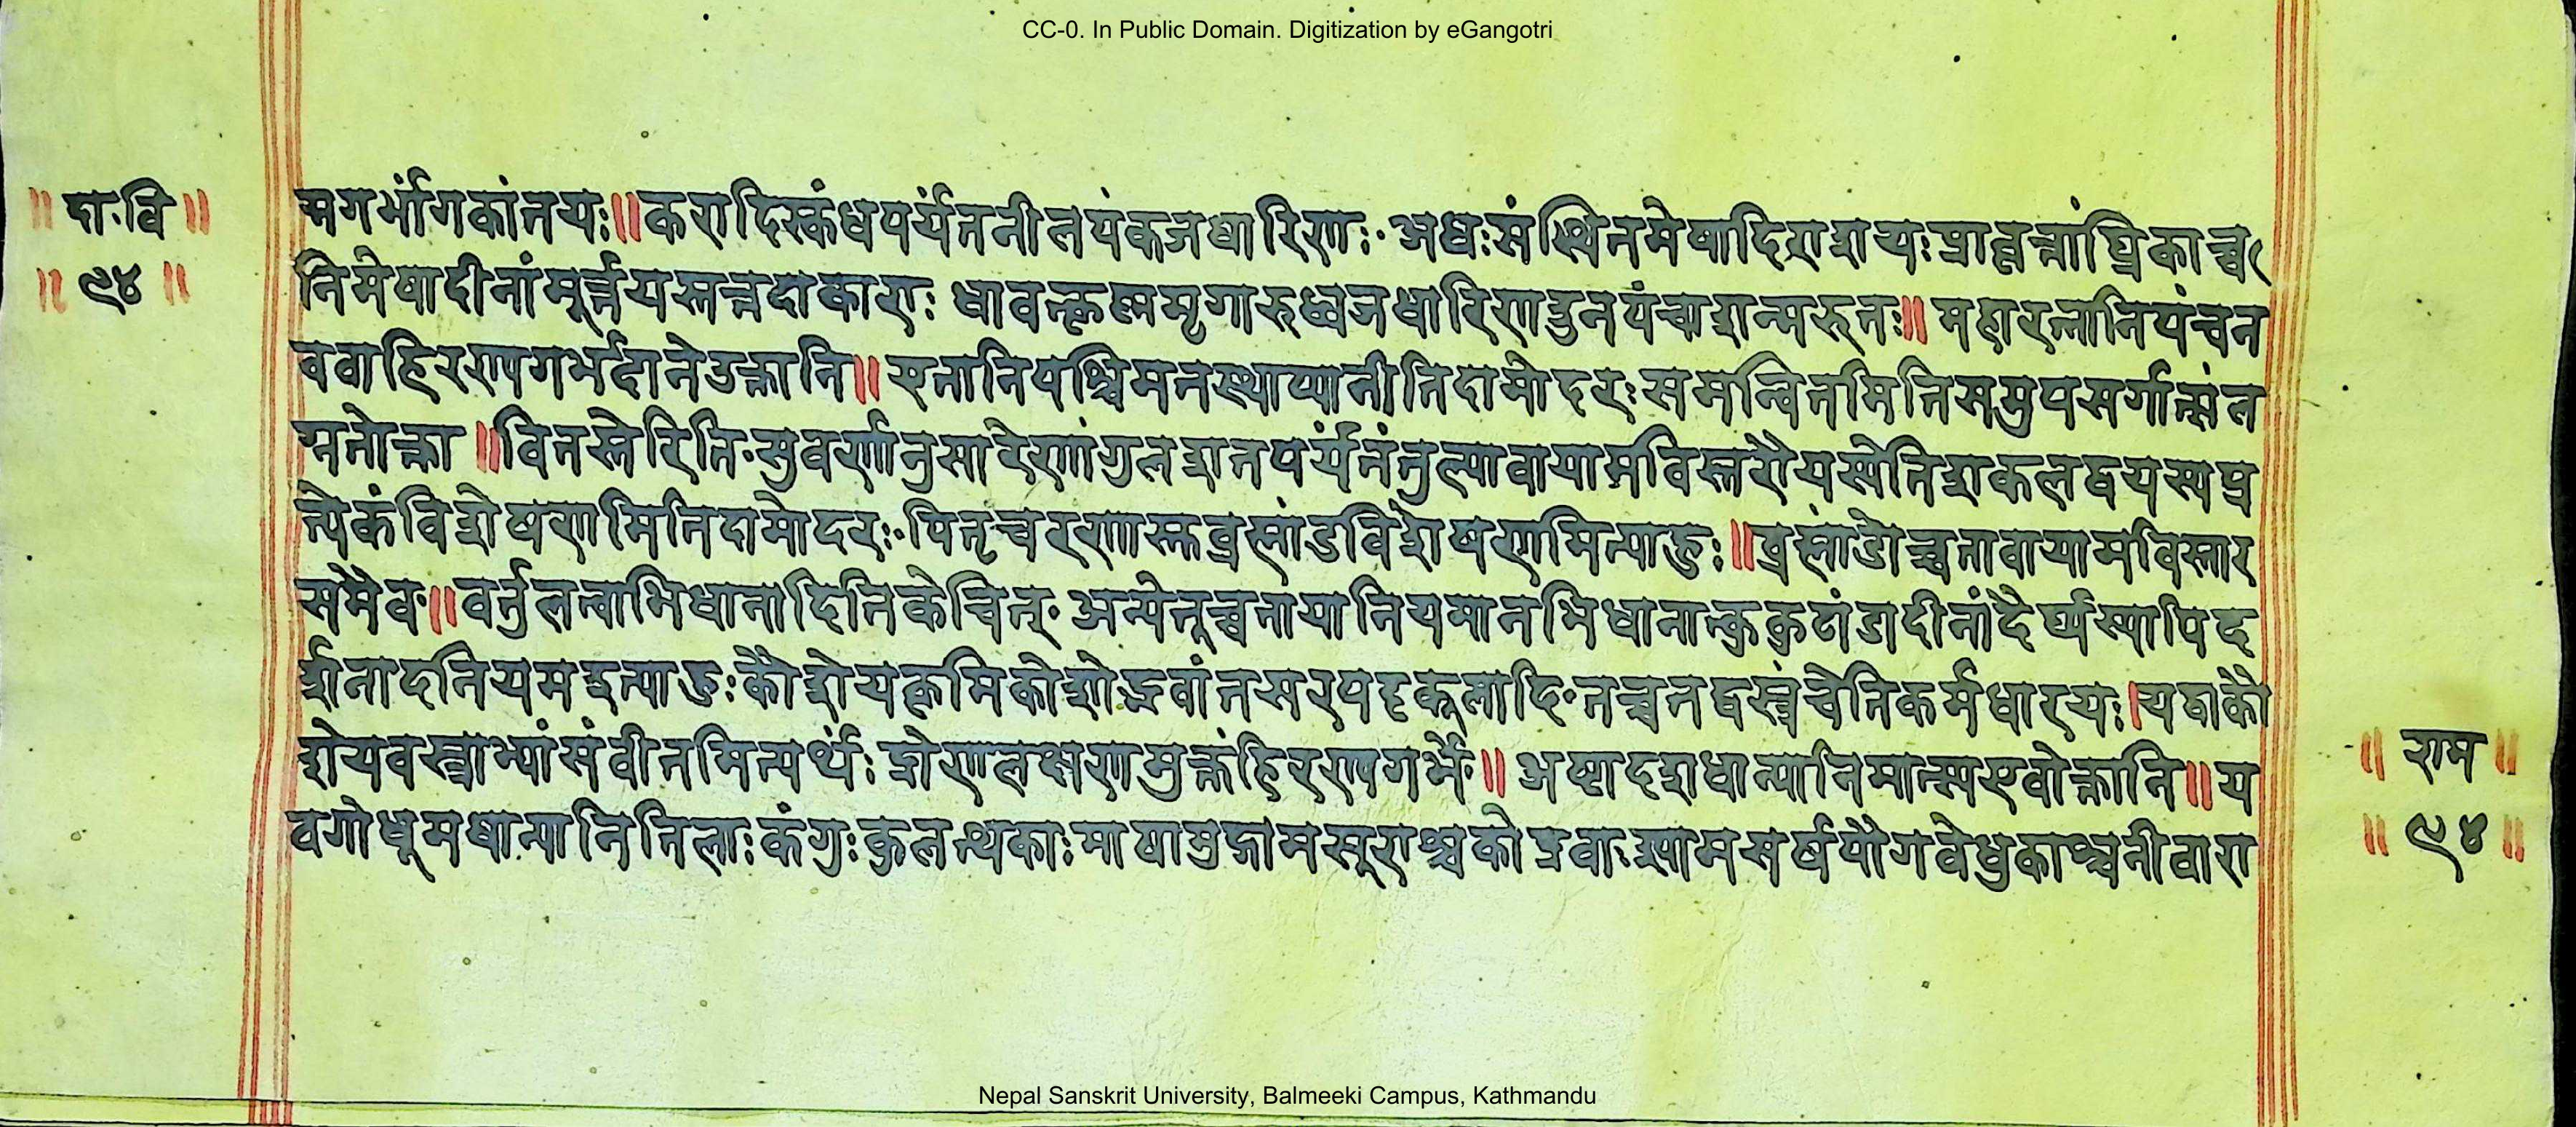 CC-0. In Public Domain. Digitization by eGangotri
॥ दा॰वि ॥
॥ ९४ ॥
मगर्भांगकांतयः॥करादिस्कंधपर्यंतनीलपंकजधारिणः॰अधःसंस्थितमेषादिराशयःप्रावृत्तांघ्रिकाश्च
निमेषादीनांमूर्त्तयस्तत्तदाकाराः धावत्कृष्णमृगारुध्वजधारिणाद्भुतपंचाशन्मरुतः॥महारत्नानिपंचत
ववाहिरण्यगर्भदानेउक्तानि॥एतानिपश्चिमतस्थाप्यानीतिदामोदरःसमन्वितमितिसमुपसर्गात्मंत
मतोक्ता॥वितस्तेरिति॰सुवर्णानुसारेणांगुलशतपर्यंतंतुल्यावायामविस्तरौयस्येतिशकलद्वयस्यप्र
त्येकंविशेषणमितिदामोदरः॰पितृचरणास्तुब्रह्मांडविशेषणमित्याहुः॥ब्रह्मांडोच्चतावायामविस्तार
समैव॰॥वर्तुलत्वाभिधानादितिकेचित्॰अन्येतूच्चतायानियमानभिधानात्कुक्कुटांडादीनांदैर्घ्यस्यापिद
र्शनादनियमइत्याहुःकौशेयकृमिकोशोद्भवांतसरपट्टकूलादि॰तच्चतद्वस्त्रंचेतिकर्मधारयः।यद्वाकौ
शेयवस्त्राभ्यांसंवीतमित्यर्थः द्रोणलक्षणमुक्तंहिरण्यगर्भे॥अष्टादशधान्यानिमात्स्यएवोक्तानि॥य
वगोधूमधान्यानितिलाःकंगुःकुलत्थकाःमाषामुद्गामसूराश्चकोद्रवाःश्यामसर्षपौगवेधुकाश्चनीवारा
॥ राम ॥
॥ ९४ ॥
Nepal Sanskrit University, Balmeeki Campus, Kathmandu